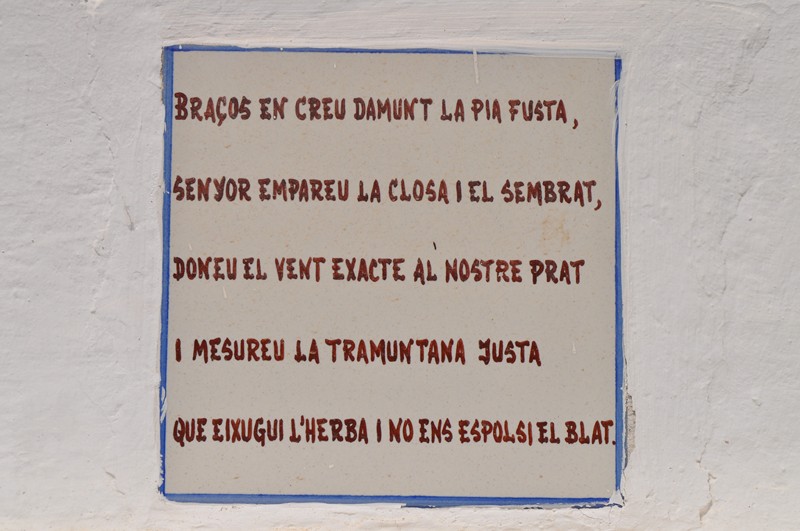 BRAÇOS EN CREU DAMUNT LA PIA FUSTA,
SENYOR EMPAREU LA CLOSA I EL SEMBRAT,
DONEU EL VENT EXACTE AL NOSTRE PRAT
I MESUREU LA TRAMUNTANA JUSTA
QUE EIXUGUI L'HERBA I NO ENS ESPOLSI EL BLAT.